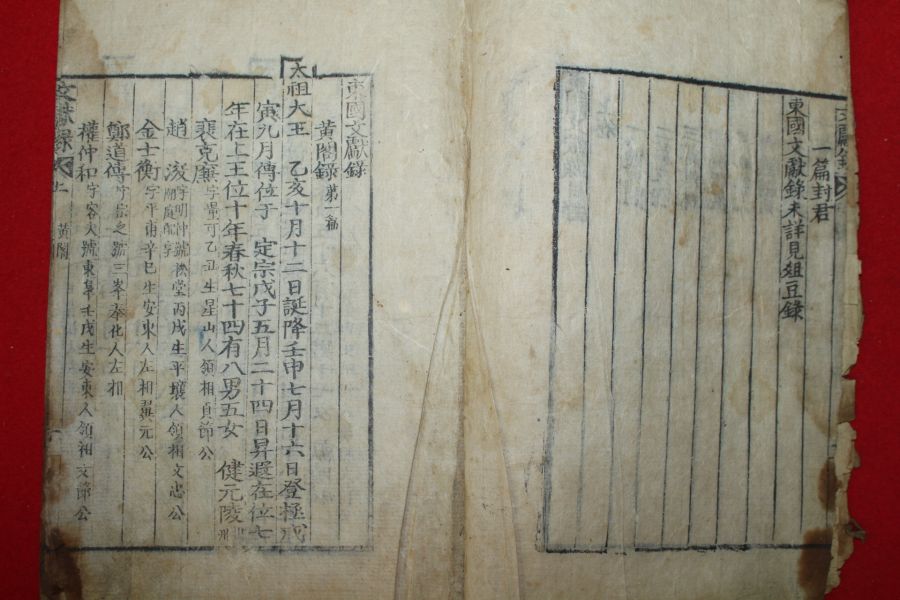 一篇封君
東國文獻錄未詳見俎豆錄
東國文獻錄
黃閣錄第一編
太祖大王 乙亥十月十一日誕降壬申七月十六日登極戊
寅九月傳位于 定宗戊子五月二十四日昇遐在位七
年在上王位十年春秋七十四有八男五女 健元陵
裴克廉字景可乙丑生星山人領相貞節公
趙浚字明仲號松堂丙戌生平壤人領相文忠公廟庭配享
金士衡字平甫辛巳生安東人左相翼元公
鄭道傳字宗之號三峯奉化人左相
權仲和字容夫號東皐壬戌生安東人領相文節公
文獻錄 上 黃閣